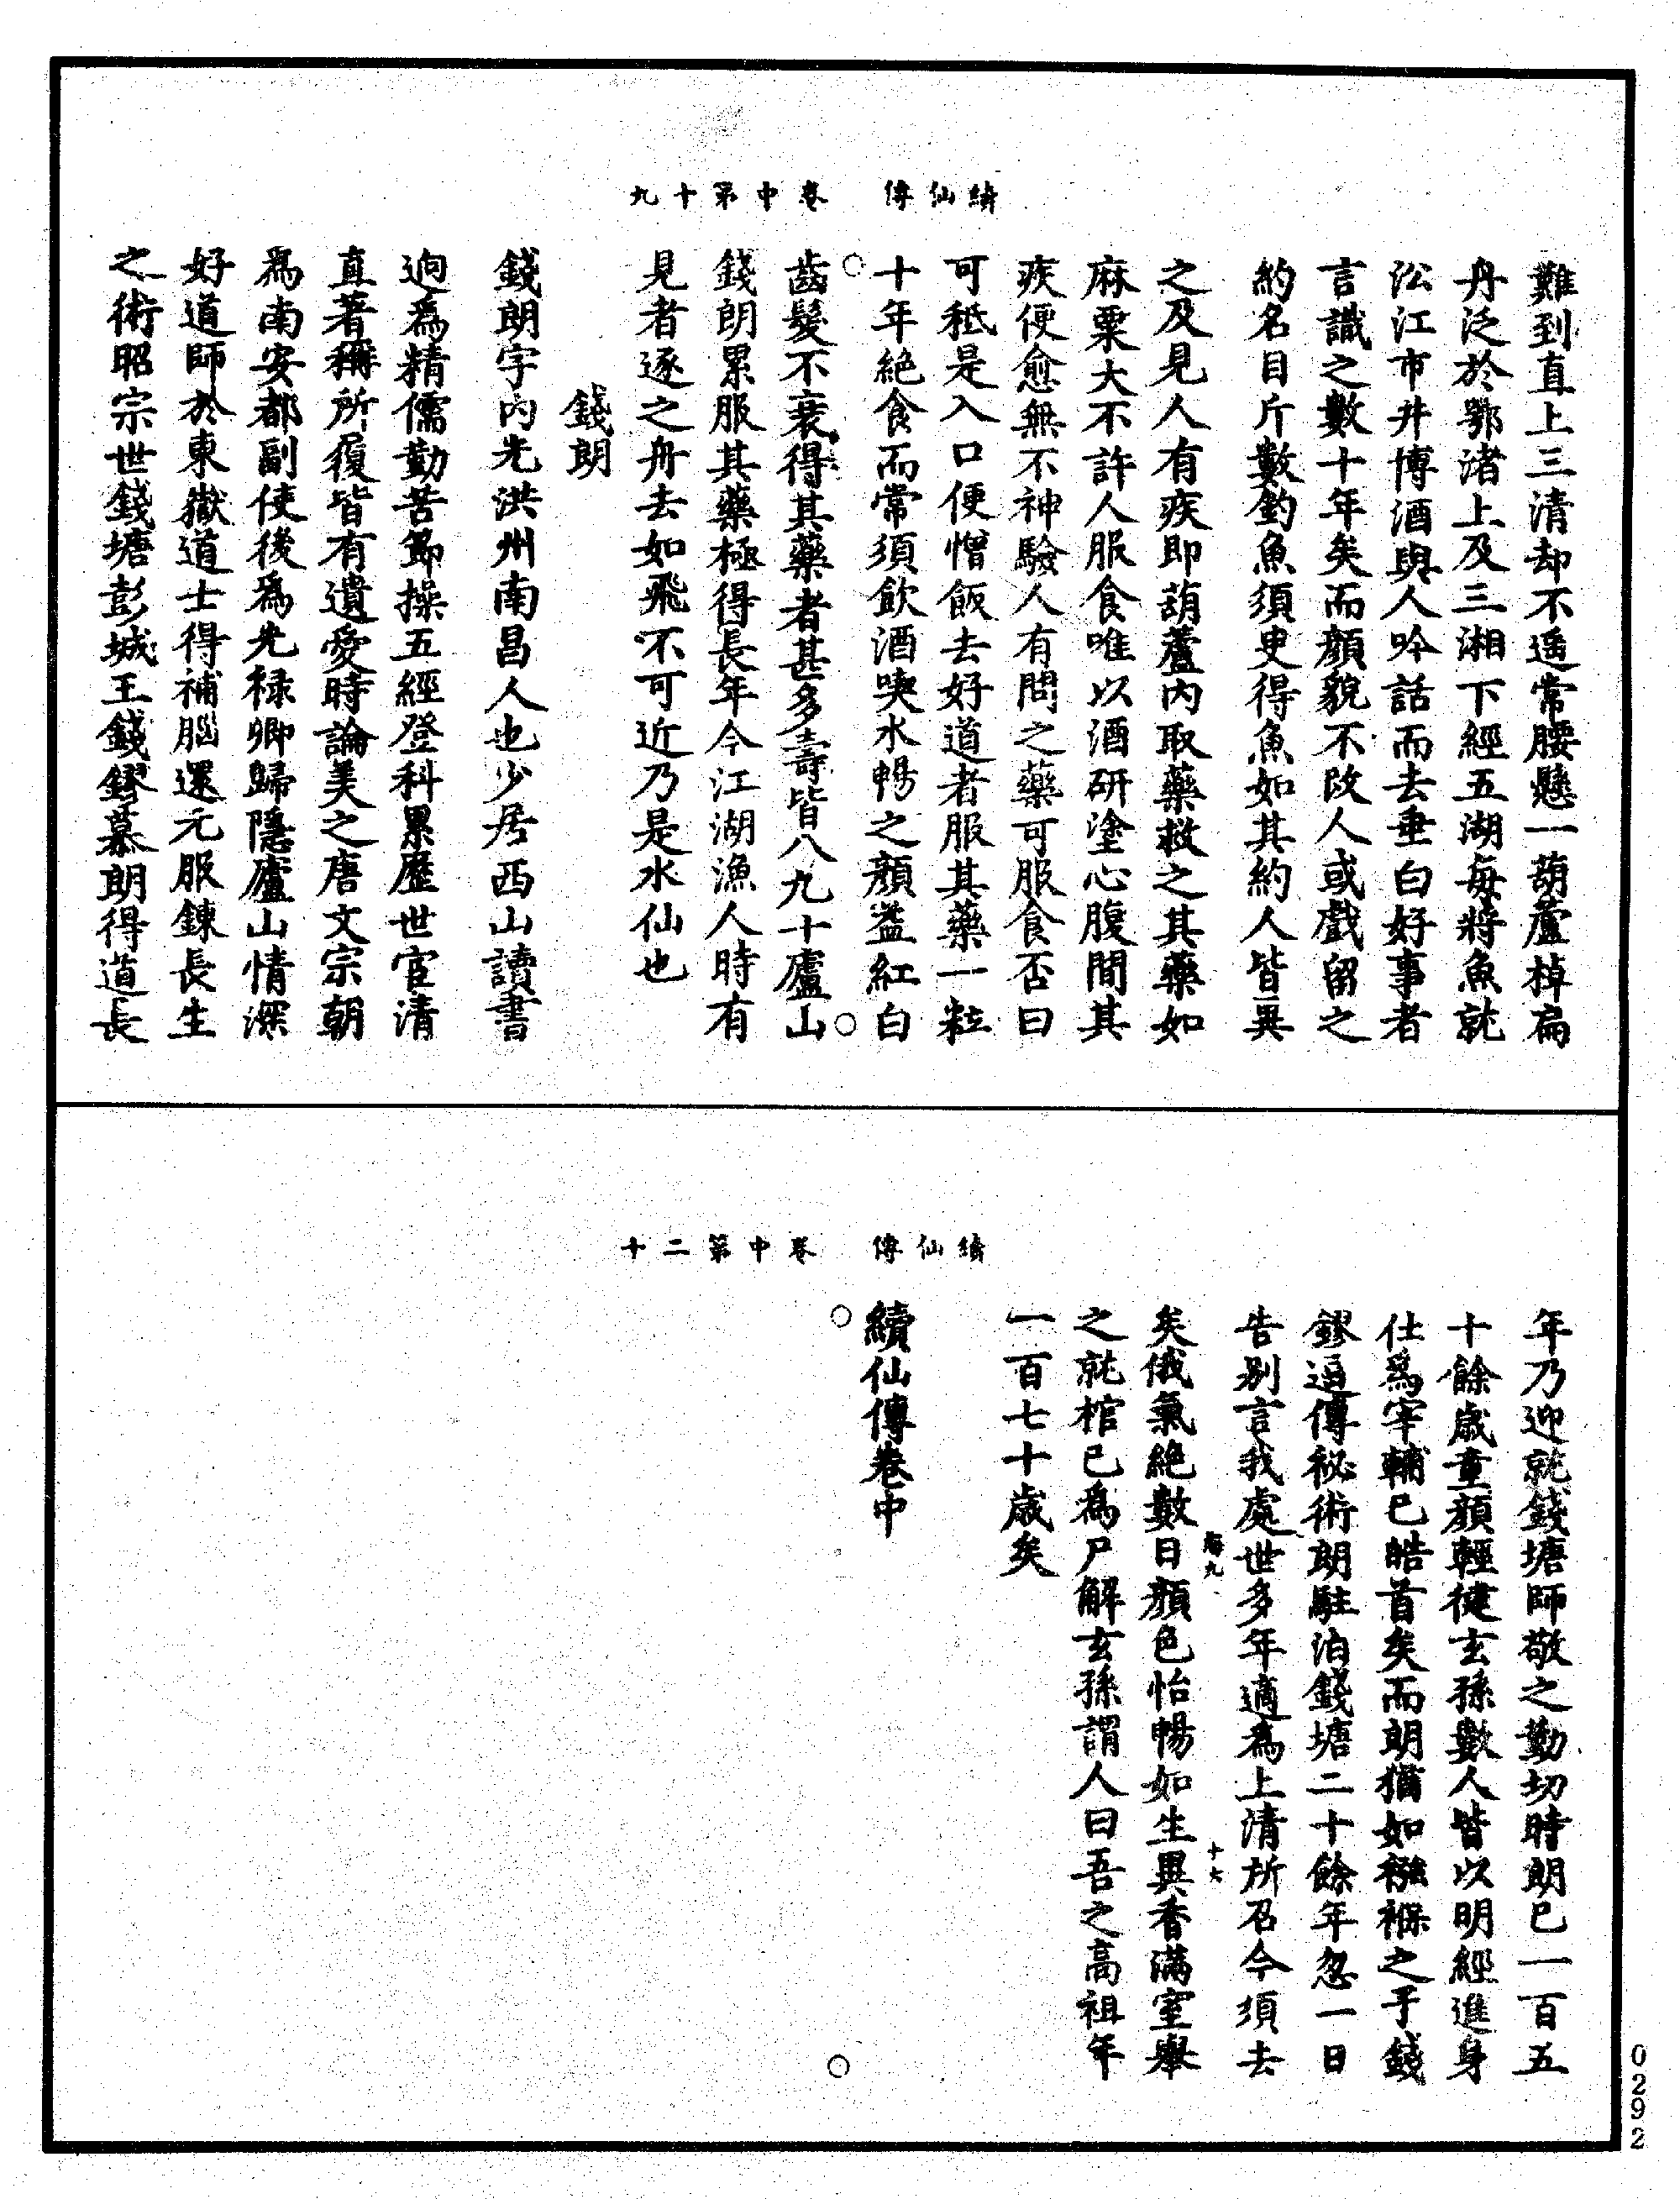 續仙傳　卷中第十九
難到直上三清却不遥常腰懸一葫蘆棹扁
舟泛於鄂渚上及三湘下經五湖每將魚就
㳂江市井博酒與人吟話而去垂白好事者
言識之數十年矣而顔貌不改人或戲留之
約名目斤數釣魚須臾得魚如其約人皆異
之及見人有疾即葫蘆内取藥救之其藥如
麻粟大不許人服食唯以酒研塗心腹間其
疾便愈無不神驗人有問之藥可服食否曰
可秖是入口便憎飯去好道者服其藥一粒
十年絶食而常須飲酒喫水暢之顔益紅白
齒髮不衰得其藥者甚多壽皆八九十廬山
錢朗累服其藥極得長年今江湖漁人時有
見者逐之舟去如飛不可近乃是水仙也
錢朗
錢朗字内光洪州南昌人也少居西山讀書
逈爲精儒勤苦節操五經登科累歷世宦清
直著稱所履皆有遺愛時論美之唐文宗朝
爲南安都副使後爲光禄卿歸隱廬山情深
好道師於東嶽道士得補腦還元服鍊長生
之術昭宗世錢塘彭城王錢鏐慕朗得道長
續仙傳　卷中第二十
年乃迎就錢塘師敬之勤切時朗已一百五
十餘歲童顔輕健玄孫數人皆以明經進身
仕爲宰輔已皓首矣而朗猶如襁褓之于錢
鏐逼傳秘術朗駐泊錢塘二十餘年忽一日
告别言我處世多年適爲上清所召今須去
海九　十七
矣俄氣絶數日顔色怡暢如生異香滿室舉
之就棺已爲尸解玄孫謂人曰吾之高祖年
一百七十歲矣
續仙傳卷中
0292